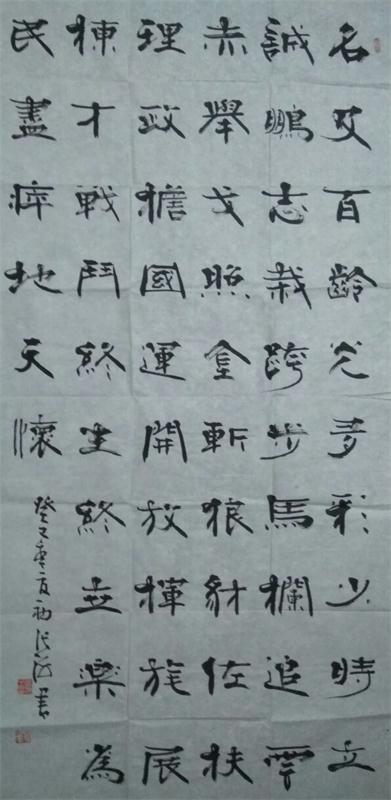 名艾百齡光多彩少時立
誠鵬志栽跨步馬欄追
赤舉戈照金斬狼豺佐扶
理政擔國運開放揮展
棟才戰鬥終生終世樂為
民盡瘁地天懷
癸卯季夏初書